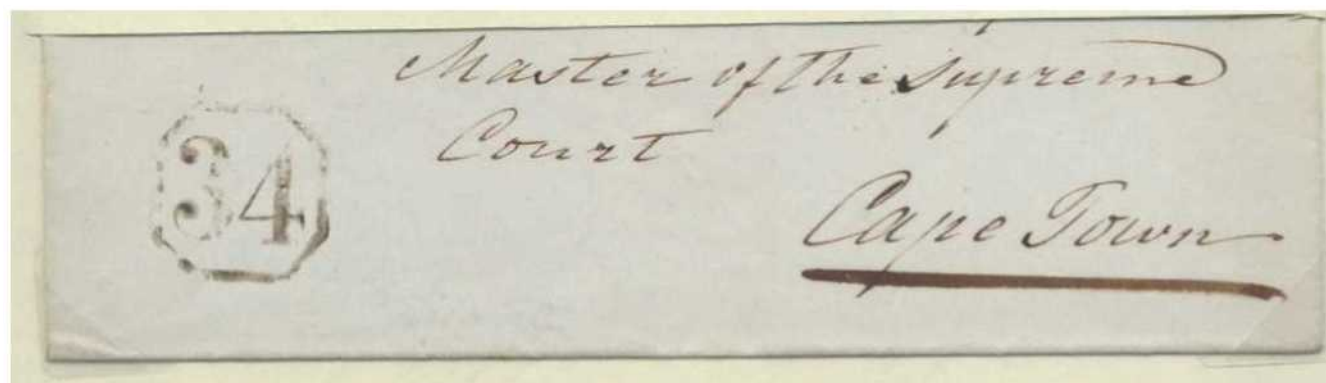 Master of the Supreme
Court
34
Cape Town